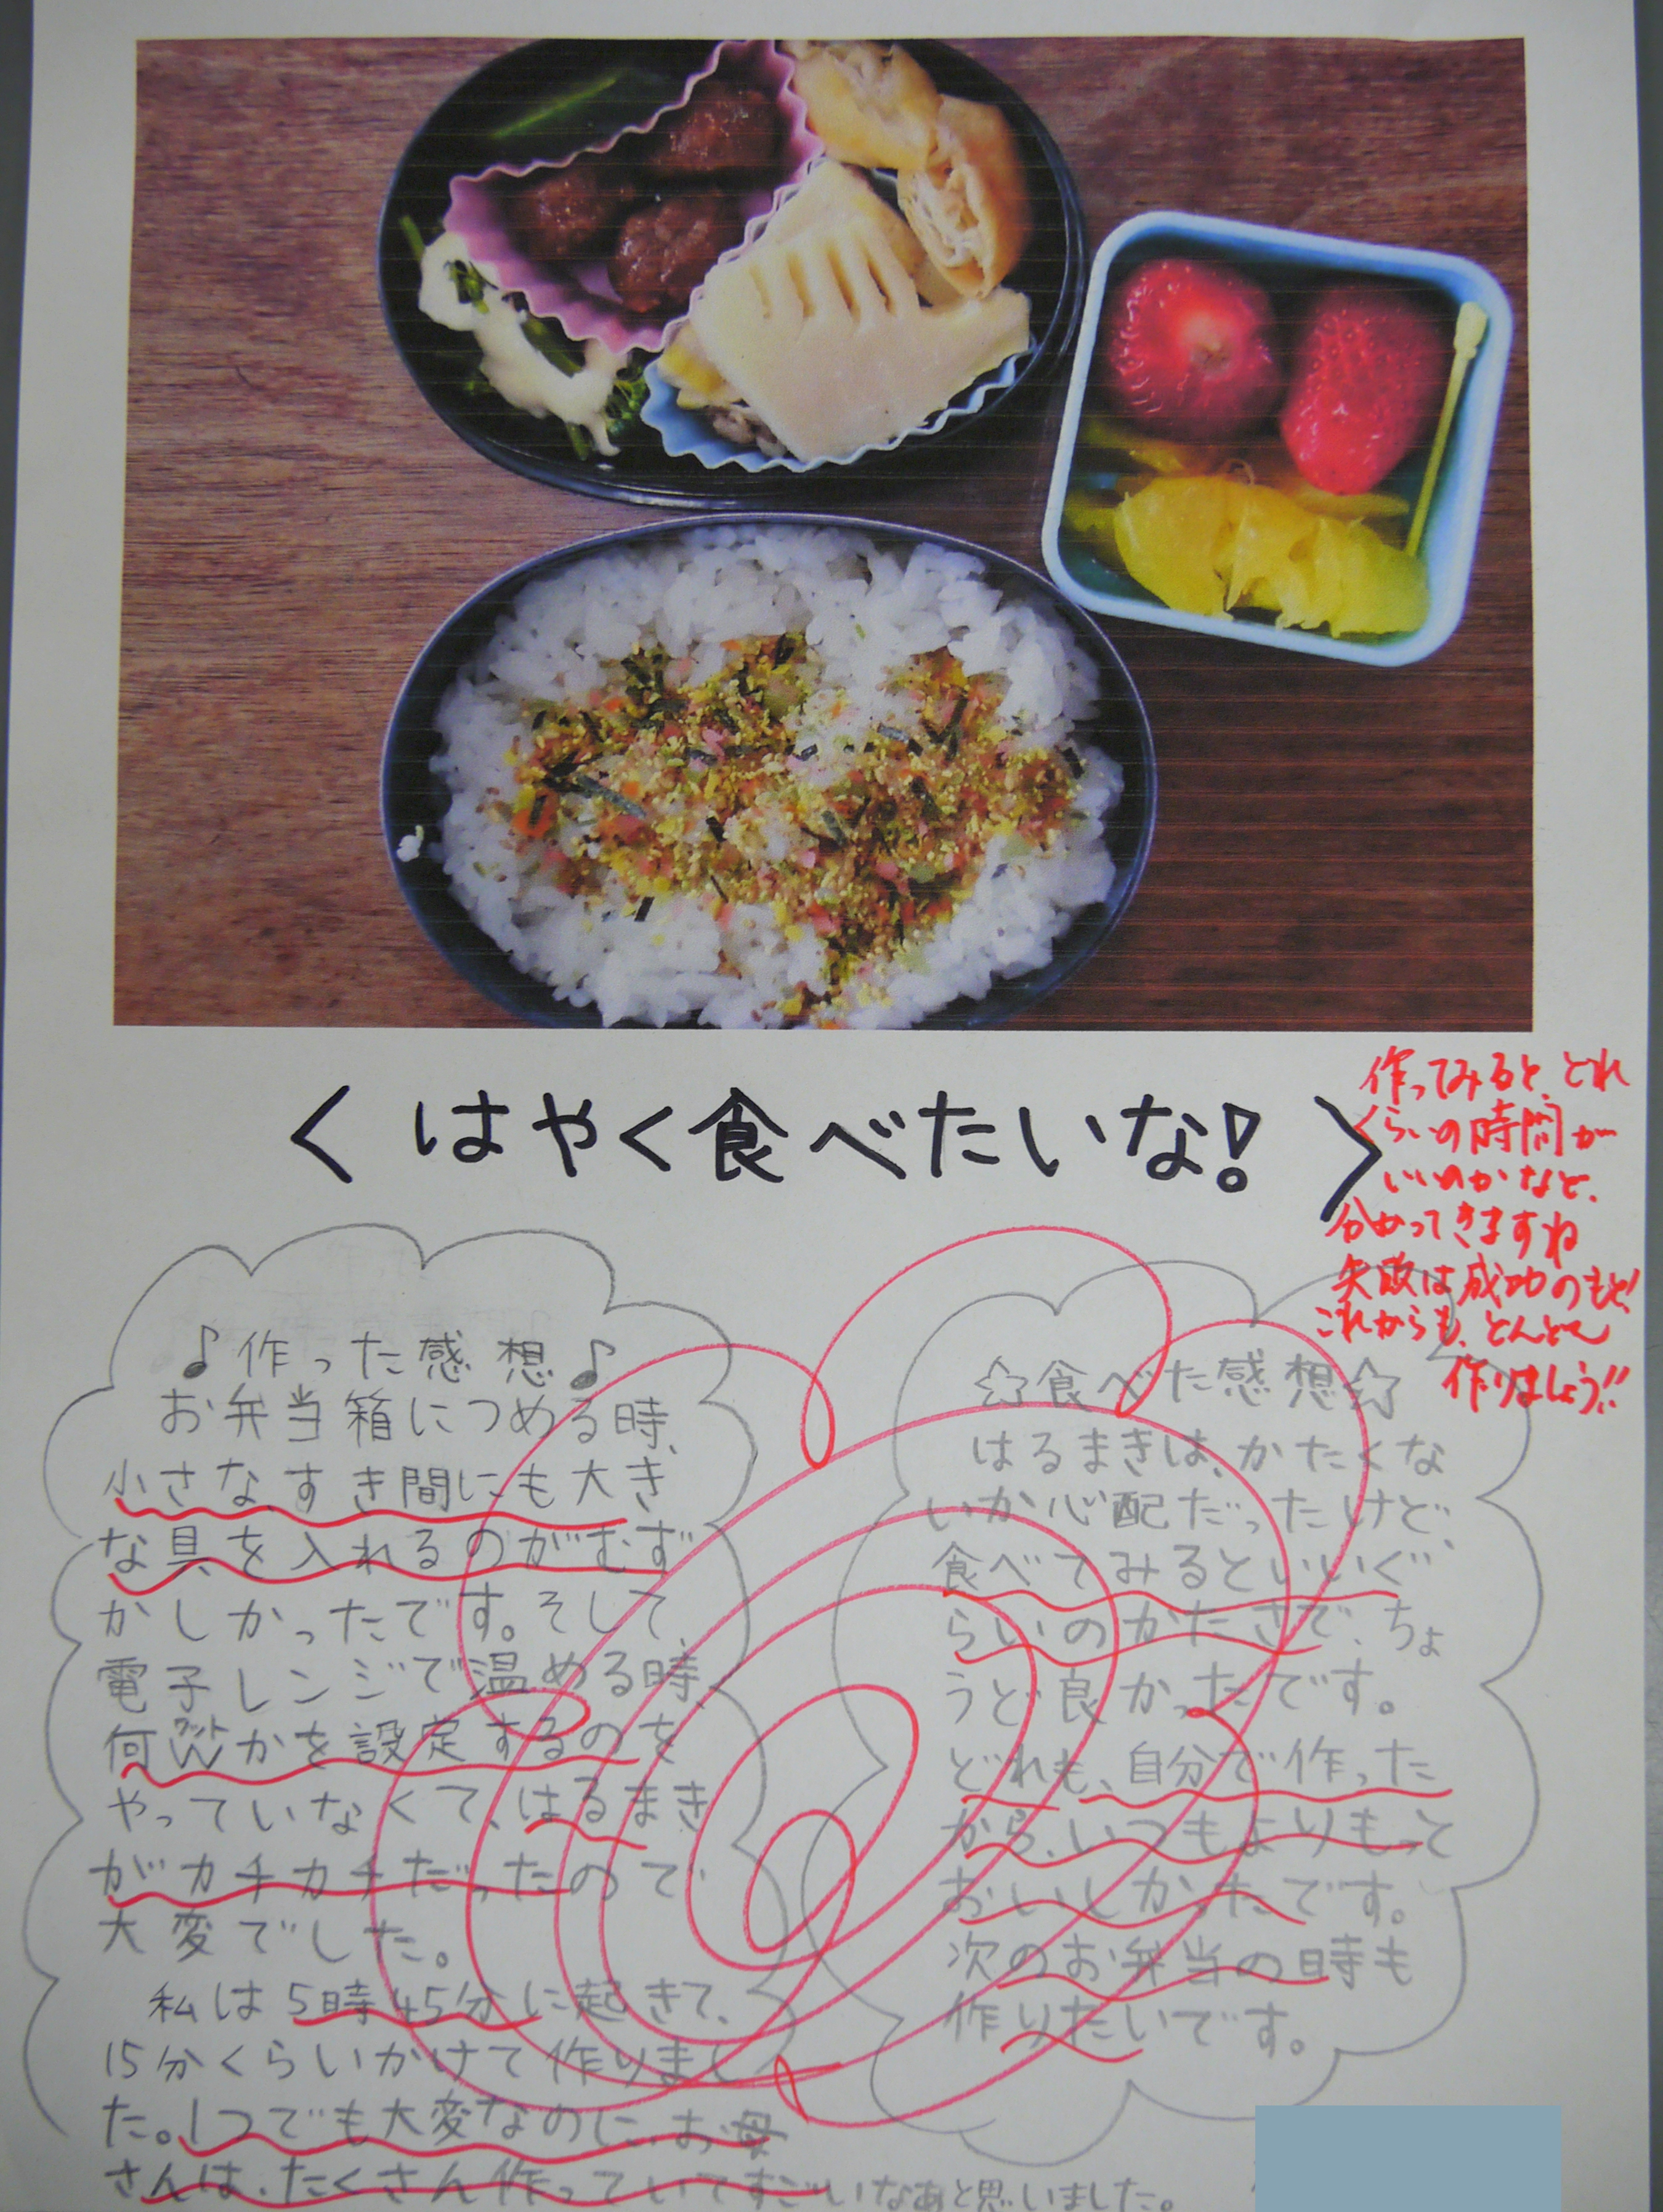 〈はやく食べたいな!〉
作ってみると、どれ
くらいの時間が
いいのかなど、
分かってきますね
失敗は成功のもと!
これからも、どんどん
作りましょう!!
♪作った感想♪
お弁当箱につめる時、
小さなすき間にも大き
な具を入れるのがむず
かしかったです。そして、
電子レンジで温める時、
何Wかを設定するのを
ワット
やっていなくて、はるまき
がカチカチだったので
大変でした。
私は5時45分に起きて、
15分くらいかけて作りまし
た。1つでも大変なのに、お母
さんは、たくさん作っていてすごいなあと思いました。
☆食べた感想☆
はるまきは、かたくな
いか心配だったけど、
食べてみるといいぐ
らいのかたさで、ちょ
うど良かったです。
どれも、自分で作った
から、いつもよりもっと
おいしかったです。
次のお弁当の時も
作りたいです。